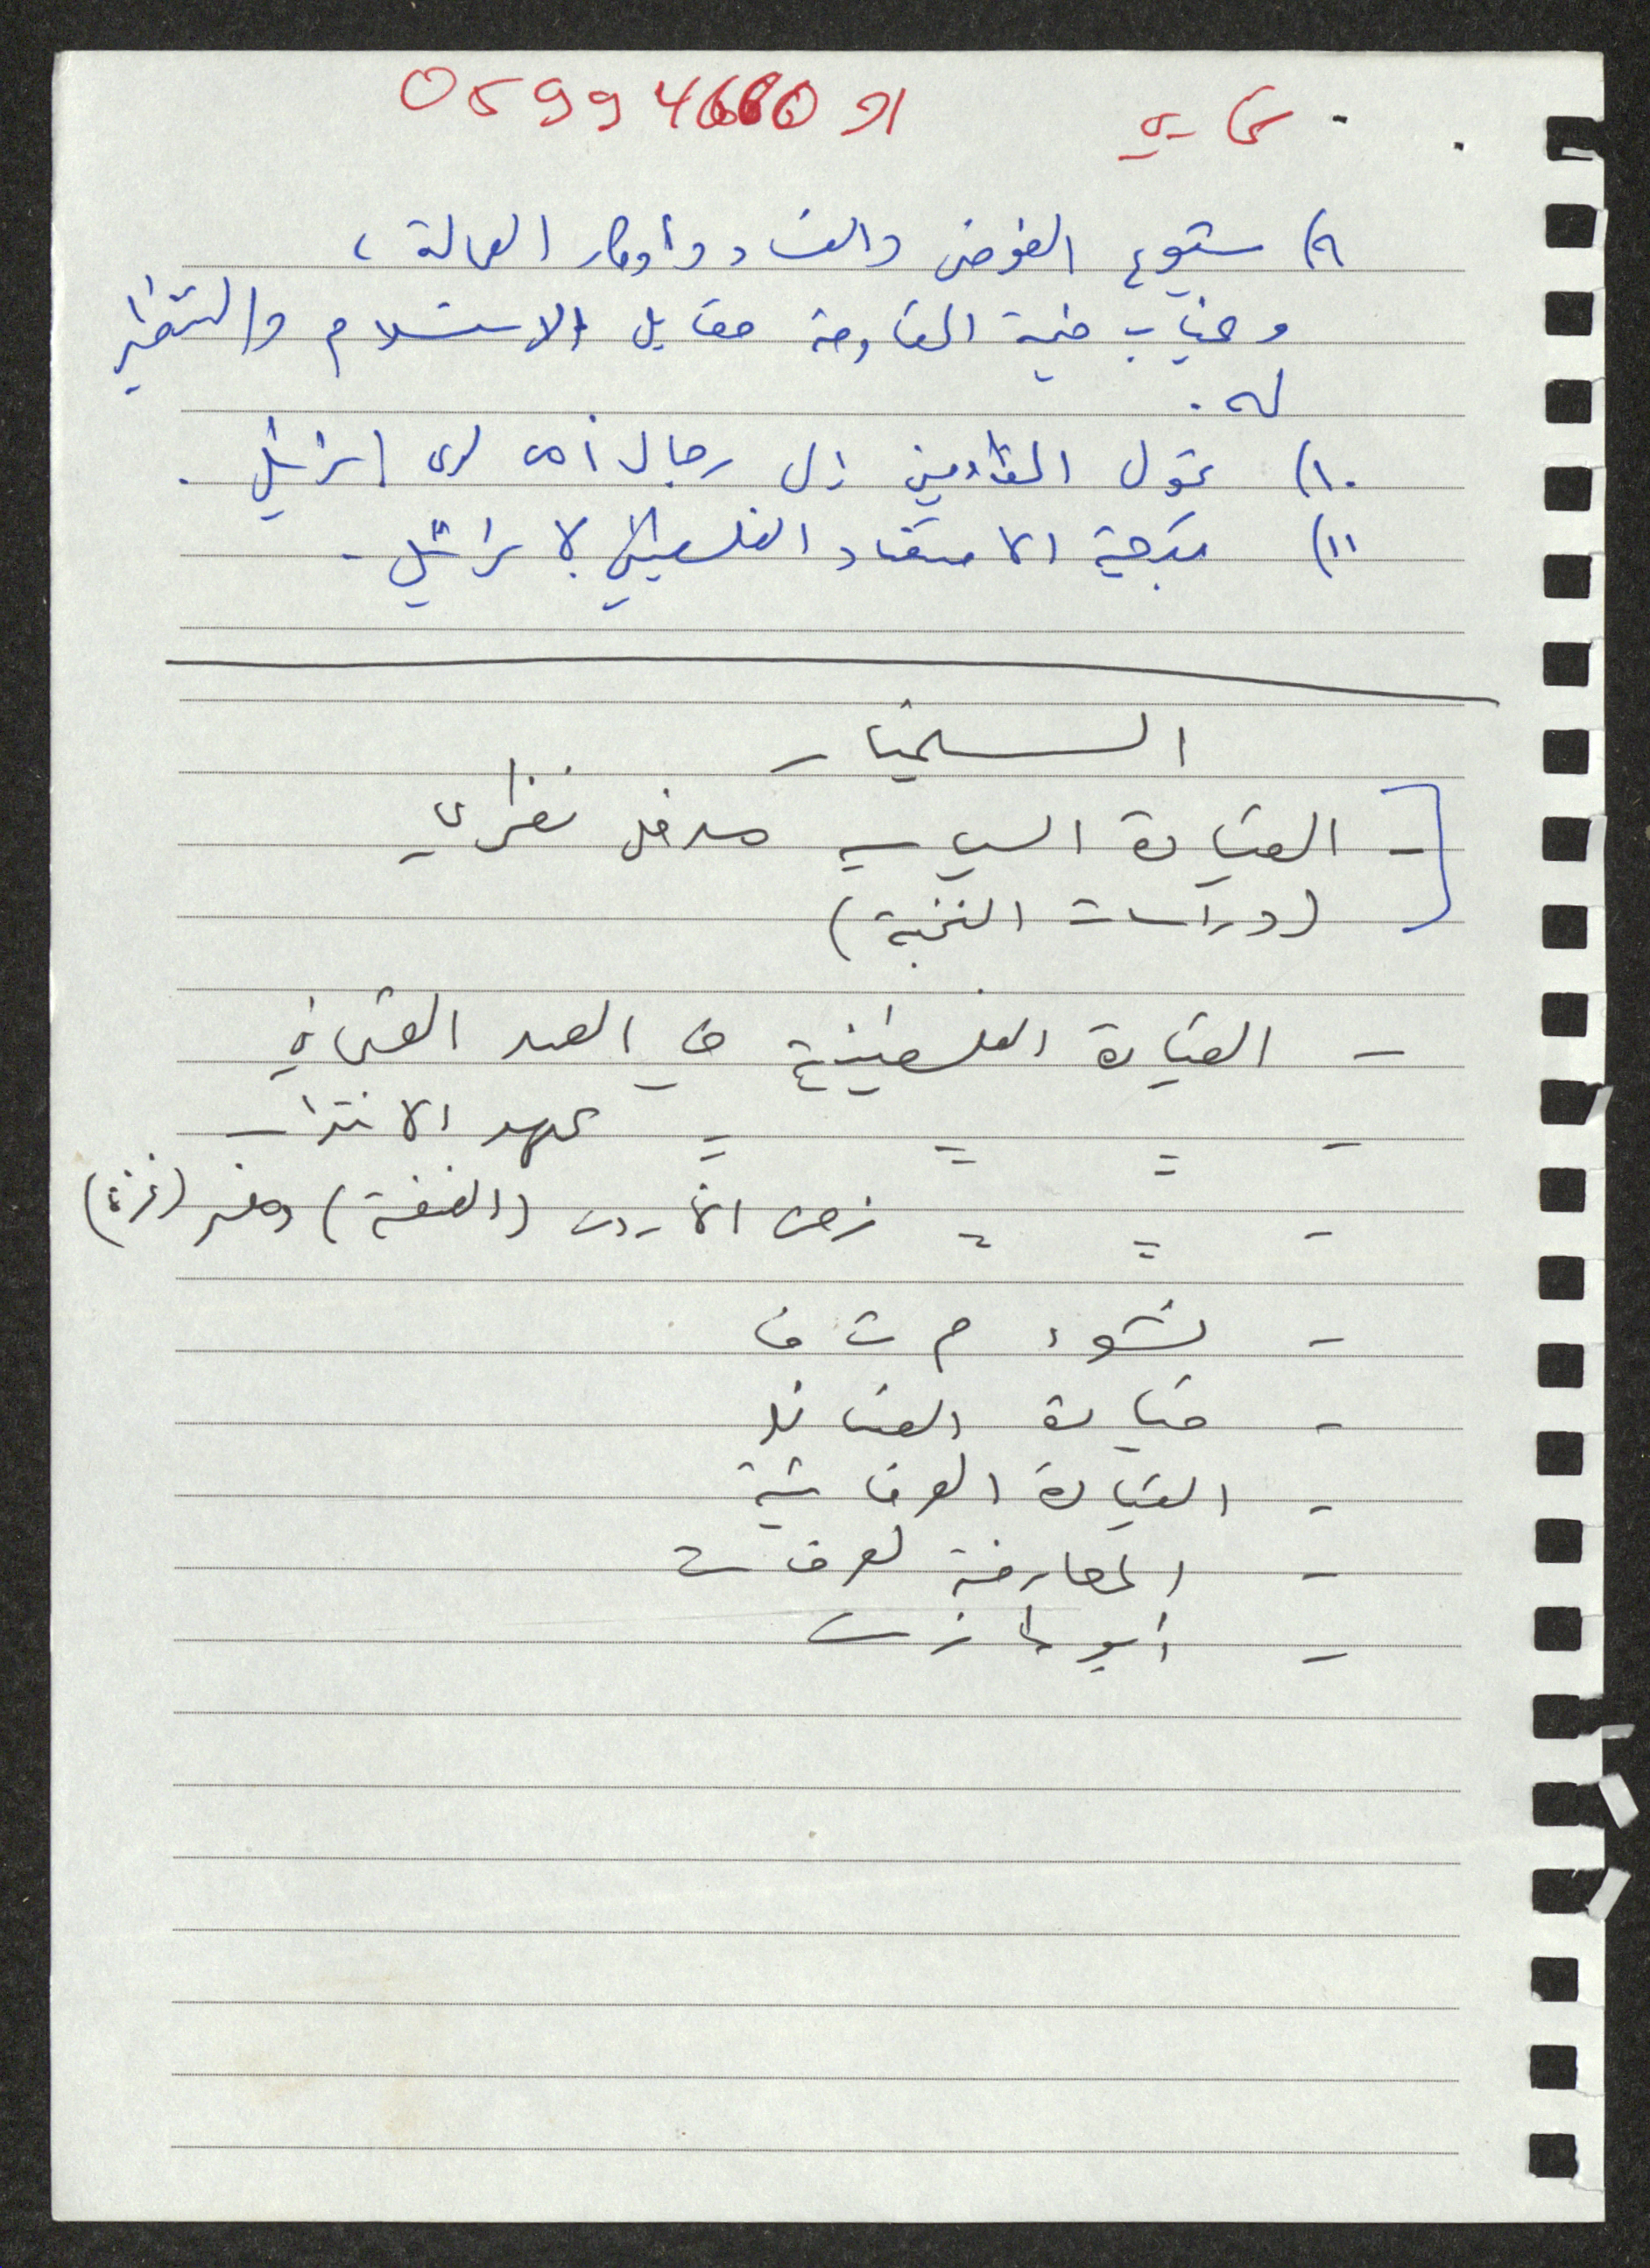 0599466091
٩) شيوع الفوضى والفساد وأوكار العمالة ،
وغياب قيمة المقاومة مقابل الاستسلام والتنظير
له .
١٠) تحول المقاومين إلى رجال أمن لدى إسرائيل .
١١) تبعية الاقتصاد الفلسطيني لإسرائيل .
السمينار
- القيادة السياسية مدخل نظري
(دراسات النخبة)
- القيادة الفلسطينية في العهد العثماني
- = = = عهد الانتداب
- = = زمن الأردن (الضفة) ومصر (غزة)
- نشوء م ت ف
- قيادة الفصائل
- القيادة العرفاتية
- المعارضة لعرفات
- أبو مازن